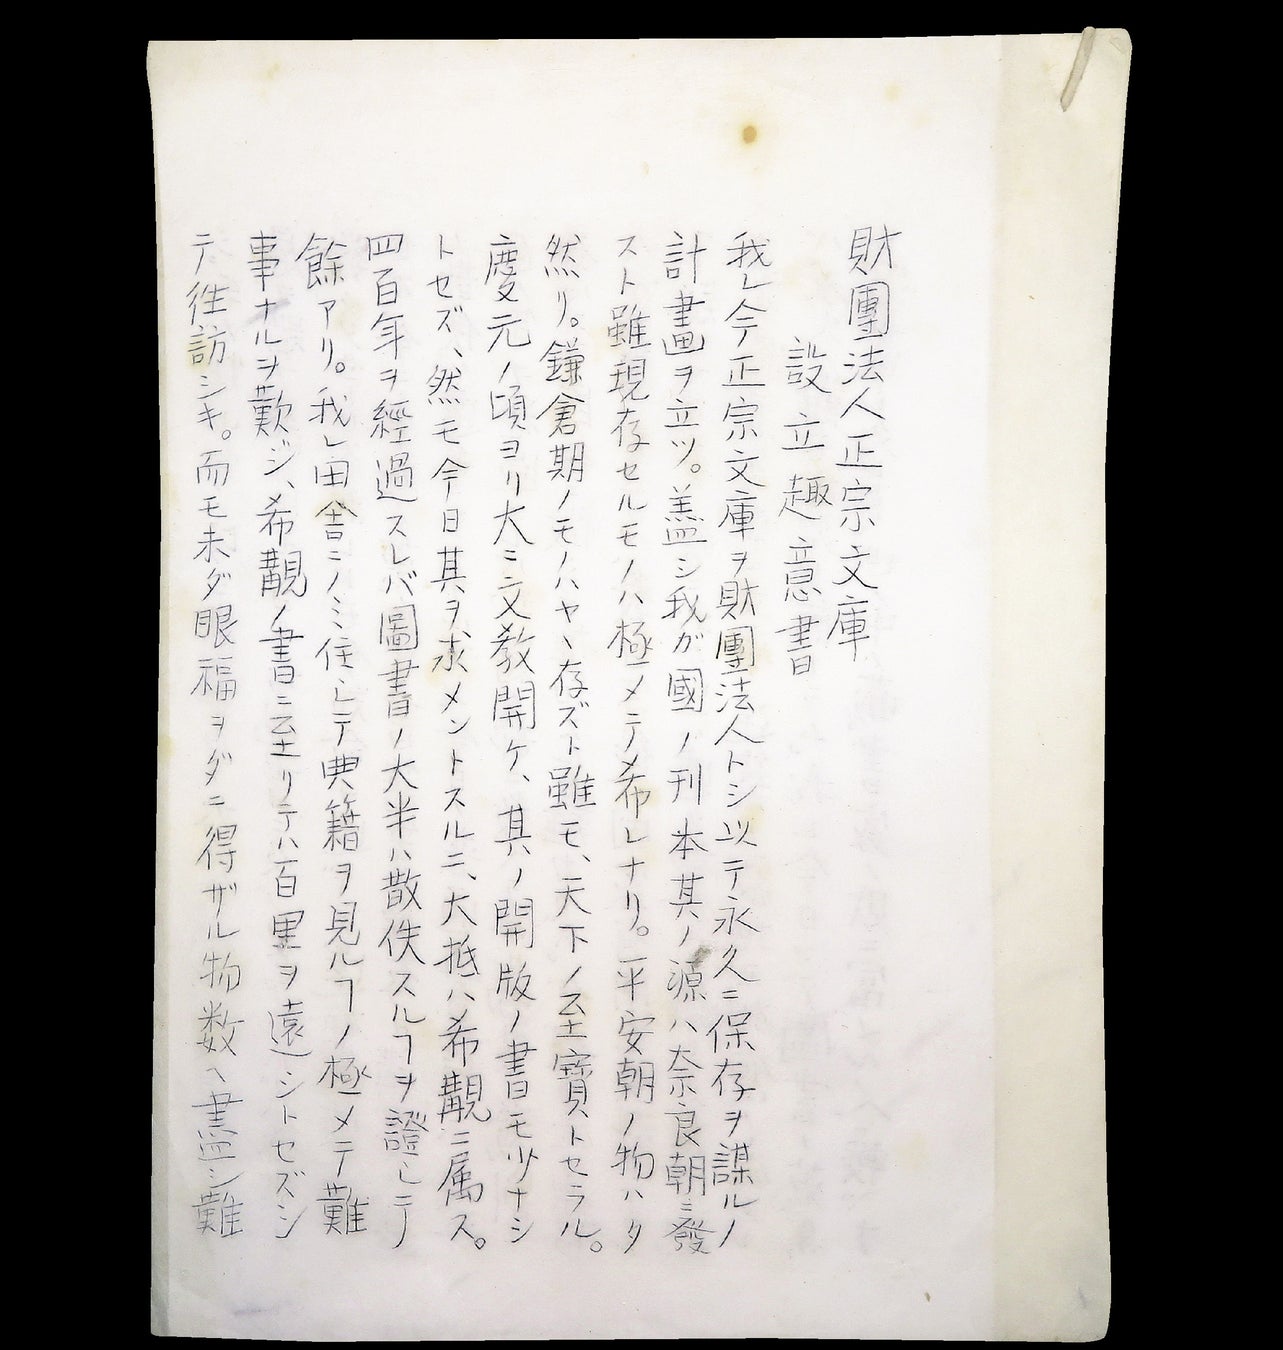 財團法人正宗文庫
設立趣意書
我レ今正宗文庫ヲ財團法人トシ以テ永久ニ保存ヲ謀ルノ
計畫ヲ立ツ。盖シ我ガ國ノ刊本其ノ源ハ奈良朝ニ發
スト雖現存セルモノハ極メテ希レナリ。平安朝ノ物ハタ
然リ。鎌倉期ノモノハヤヽ存ズト雖モ、天下ノ至寶トセラル。
慶元ノ頃ヨリ大ニ文教開ケ、其ノ開版ノ書モ少ナシ
トセズ、然モ今日其ヲ求メントスルニ、大抵ハ希覯ニ属ス。
四百年ヲ經過スレバ圖書ノ大半ハ散佚スルヿヲ證シテ
餘アリ。我レ田舎ニノミ住シテ典籍ヲ見ルヿノ極メテ難
事ナルヲ歎ジ、希覯ノ書ニ至リテハ百里ヲ遠シトセズシ
テ徃訪シキ。而モ未ダ眼福ヲダニ得ザル物数ヘ盡シ難